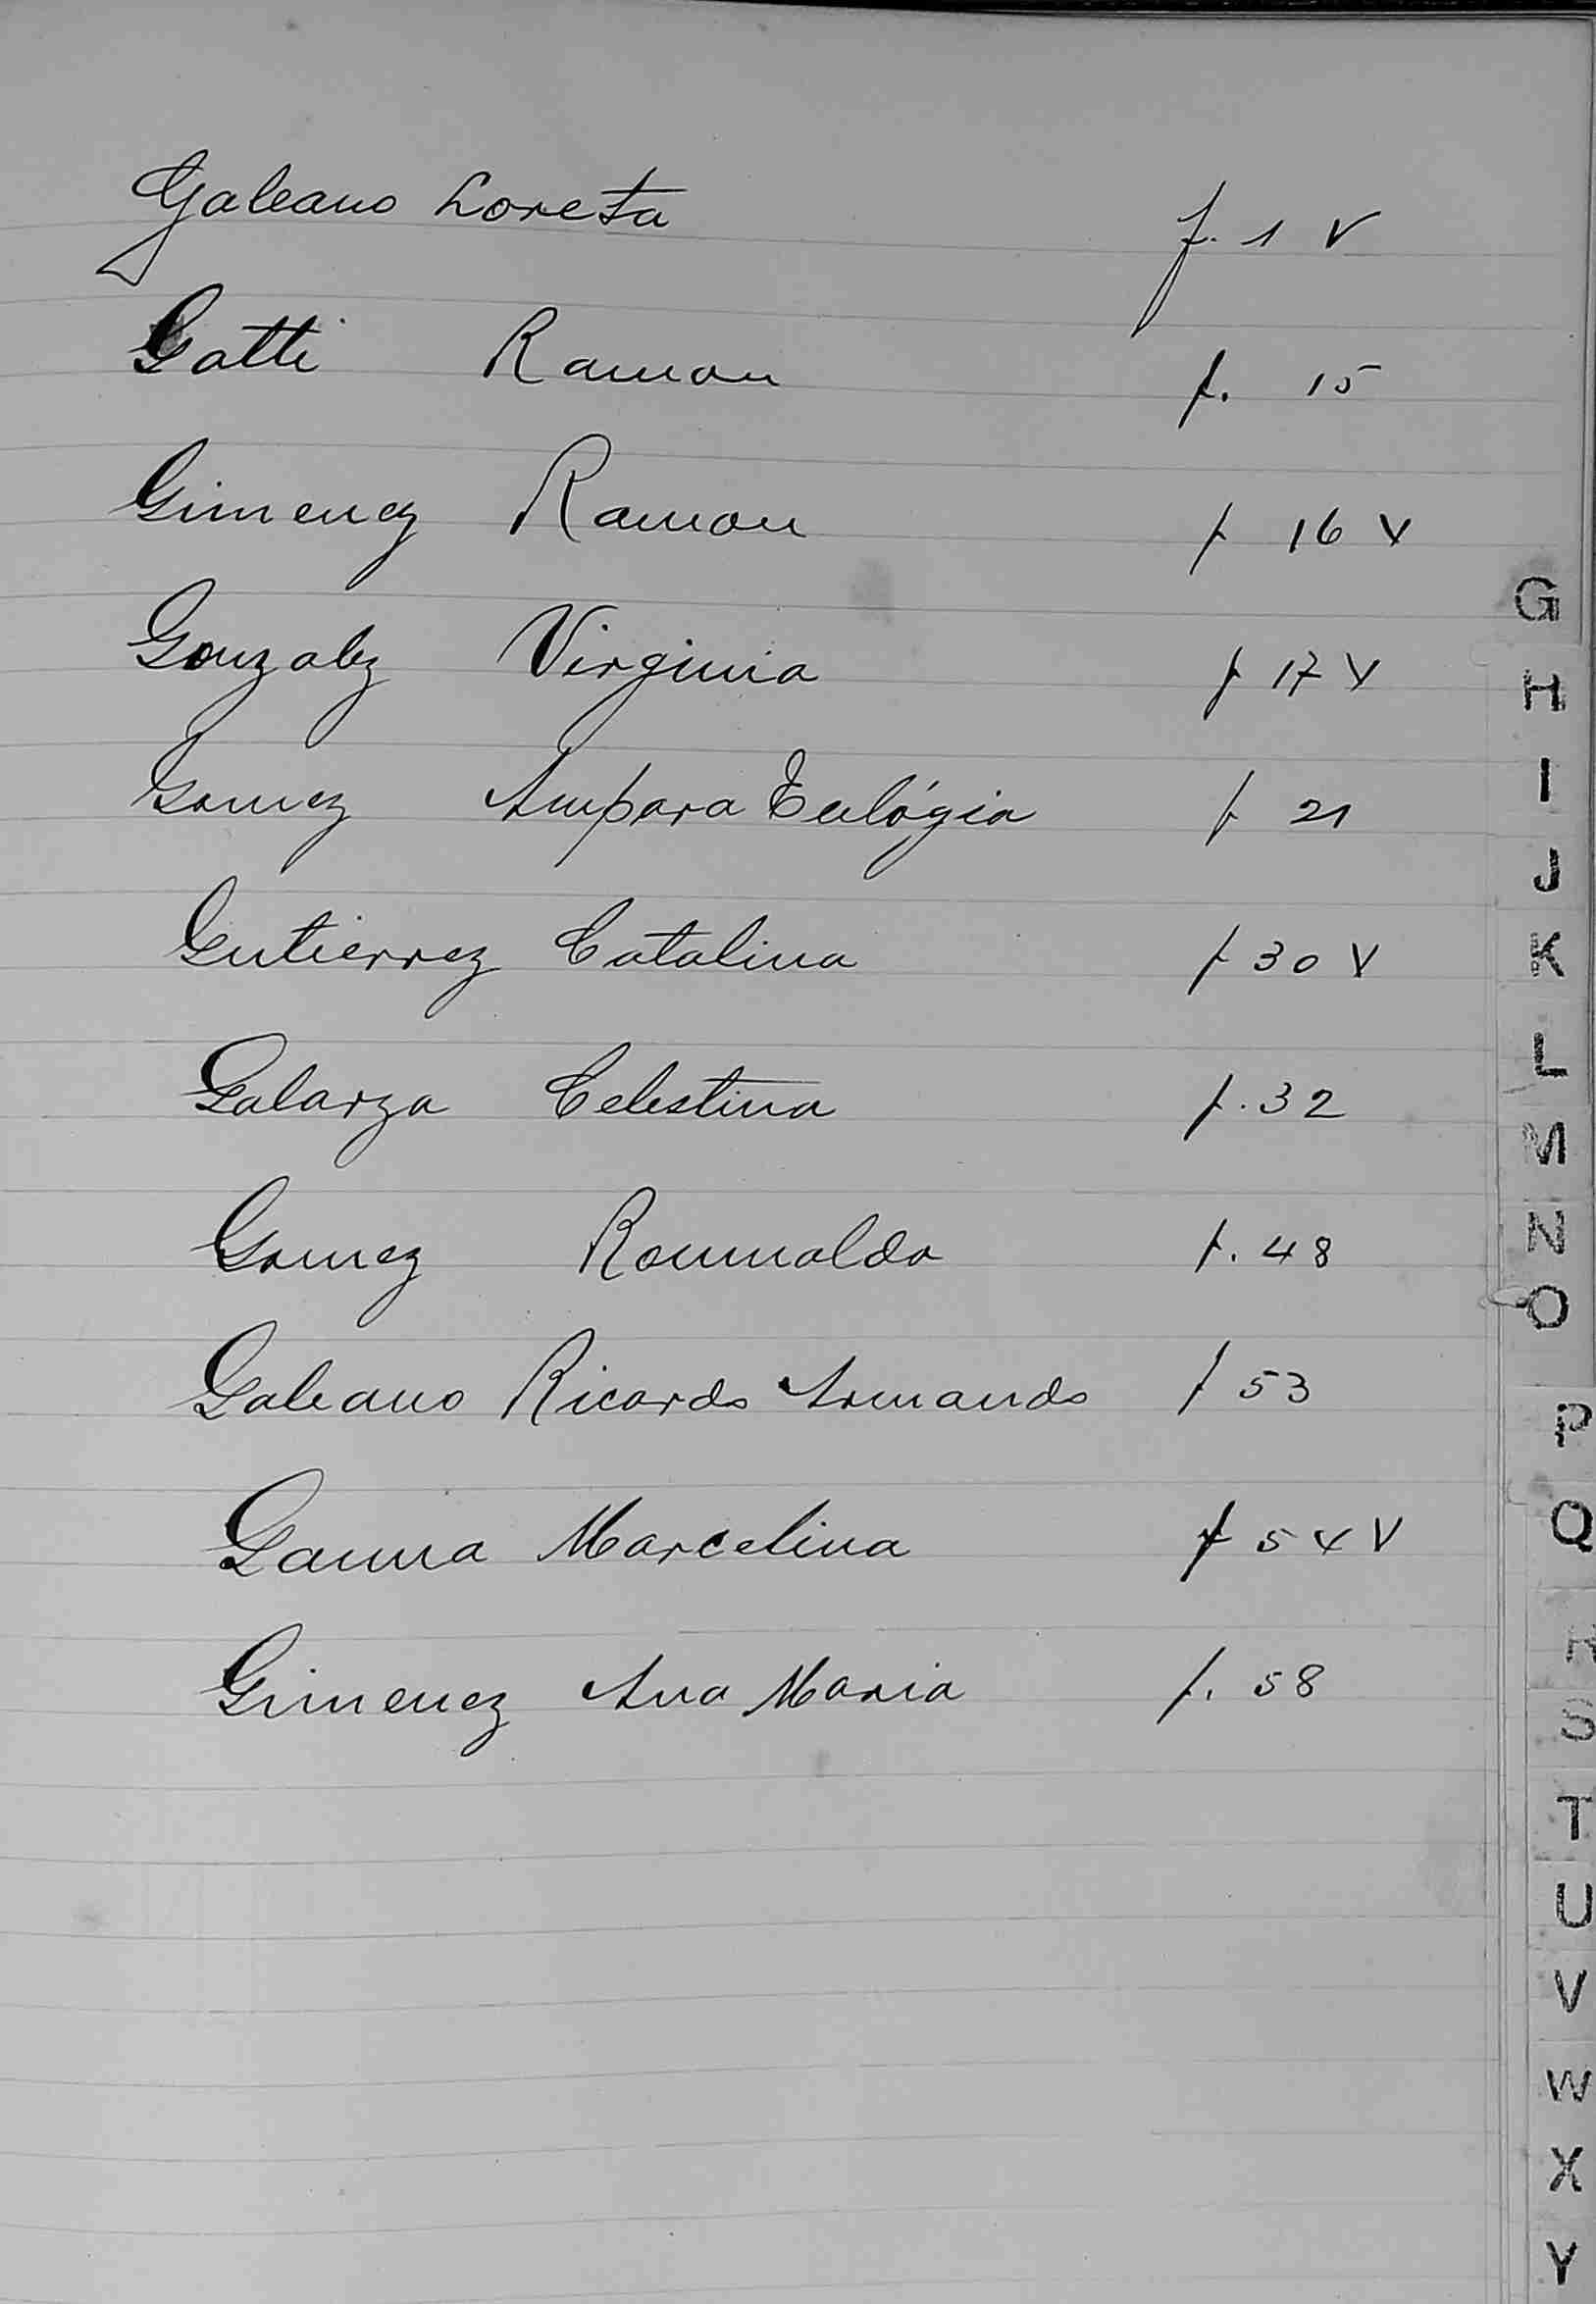 Galeano Loreta f. 1 V
Gatti Ramon f. 15
Gimenez Ramon f 16 V
Gonzalez Virginia f 17 V
Gomez Ampara Eulógia f 21
Gutierrez Catalina f 30 V
Galarza Celestina f. 32
Gomez Romualdo f. 48
Galeano Ricardo Armando f 53
Gauna Marcelina f 54 V
Gimenez Ana Maria f. 58
G
H
I
J
K
L
M
N
O
P
Q
R
S
T
U
V
W
X
Y